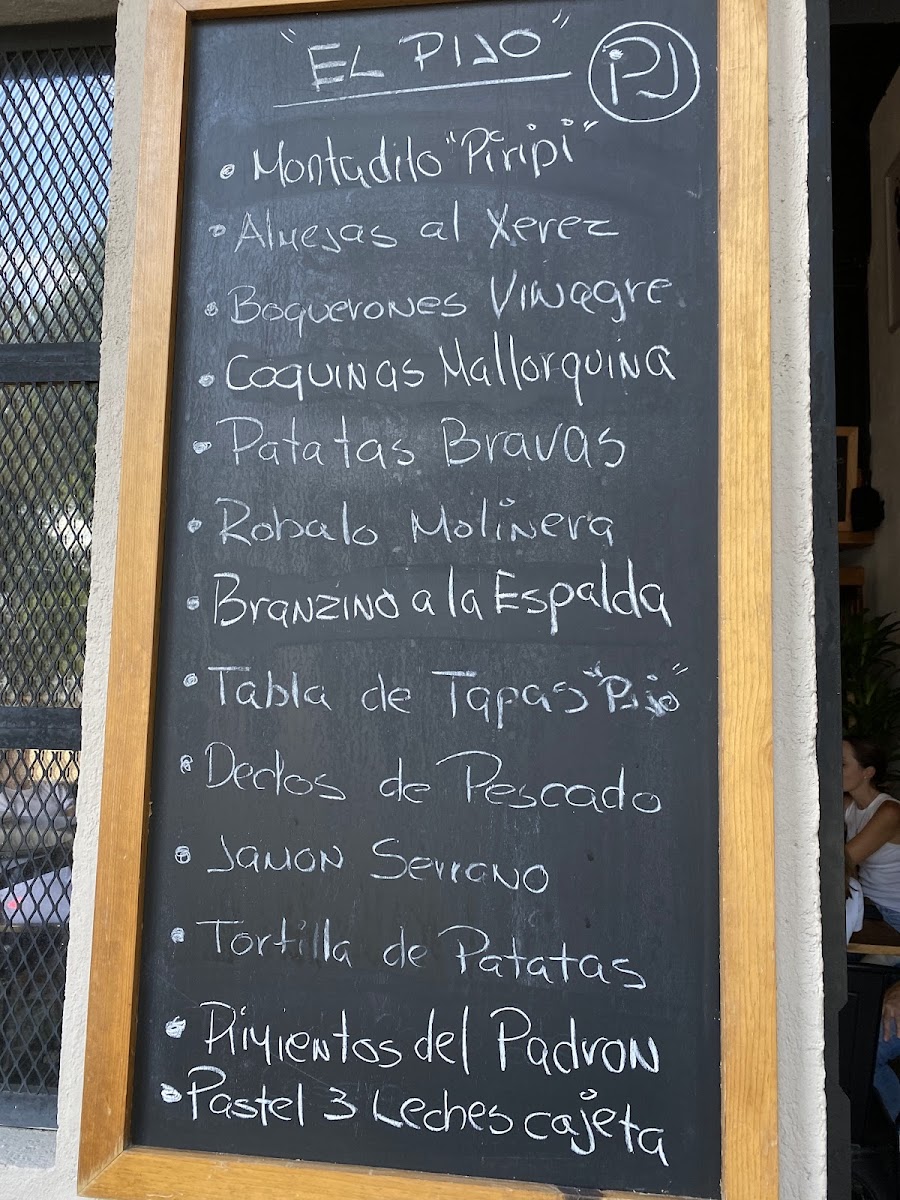 "EL PIJO" PJ
• Montadito "Piripi"
• Almejas al Xerez
• Boquerones Vinagre
• Coquinas Mallorquina
• Patatas Bravas
• Robalo Molinera
• Branzino a la Espalda
• Tabla de Tapas "Pijo"
• Dedos de Pescado
• Jamon Serrano
• Tortilla de Patatas
• Pimientos del Padron
• Pastel 3 Leches cajeta